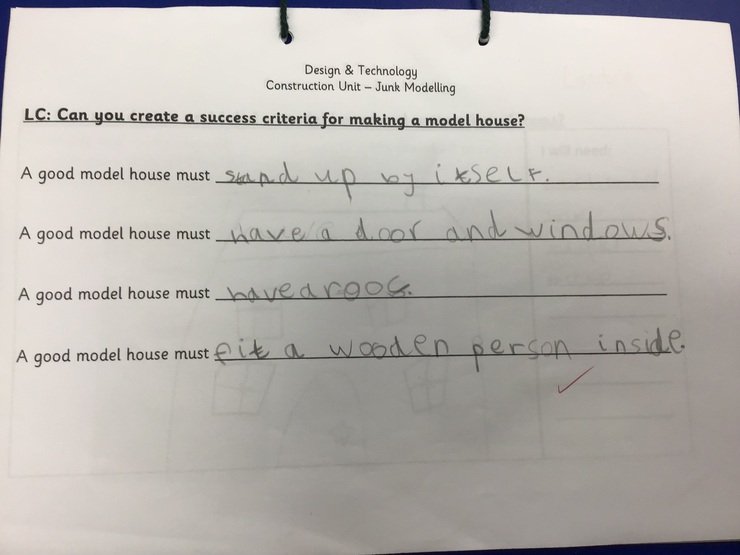 Design & Technology
Construction Unit – Junk Modelling
LC: Can you create a success criteria for making a model house?
A good model house must stand up by itself.
A good model house must have a door and windows.
A good model house must have a roof.
A good model house must fit a wooden person inside.